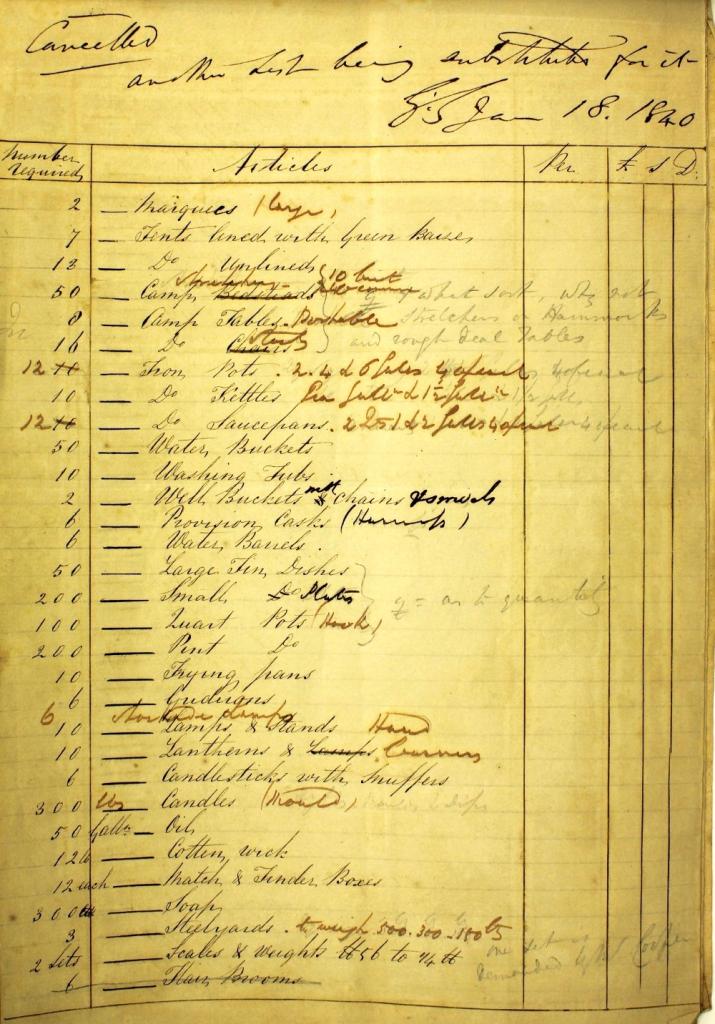 Cancelled
another list being substituted for it
G: G Jan 18. 1840
Number required Articles Per £ S D:
2 — Marquees (large)
7 — Tents lined with Green Baize
12 — Do Unlined 10
50 — Camp Bedsteads what sort, why not
8 — Camp Tables. Portable Stretchers or Hammocks
16 — Do Chairs and rough deal Tables
12 10 — Iron Pots. 2. 4 & 6 Galls 4 of each
10 — Do Kettles
12 10 — Do Saucepans. Galls 4 of each
50 — Water Buckets
10 — Washing Tubs
2 — Well Buckets with Chains
6 — Provision Casks (Harness)
6 — Water Barrels.
50 — Large Tin Dishes
200 — Small Do Plates as to quantity
100 — Quart Pots (Hooks)
200 — Pint Do
10 — Frying pans
6 — Gridirons
6
10 — Lamps & Stands Hand
10 — Lantherns & Lamps. burners
6 — Candlesticks with Snuffers
300 lbs — Candles (Mould)
50 Galls — Oil
12 lb — Cotton wick
12 each — Match & Tinder Boxes
300 lb — Soap
3 — Steelyards. to weigh 500. 300. 150 lbs
2 Sets — Scales & Weights lb 56 to ¼ lb one set
6 — Hair Brooms demanded by